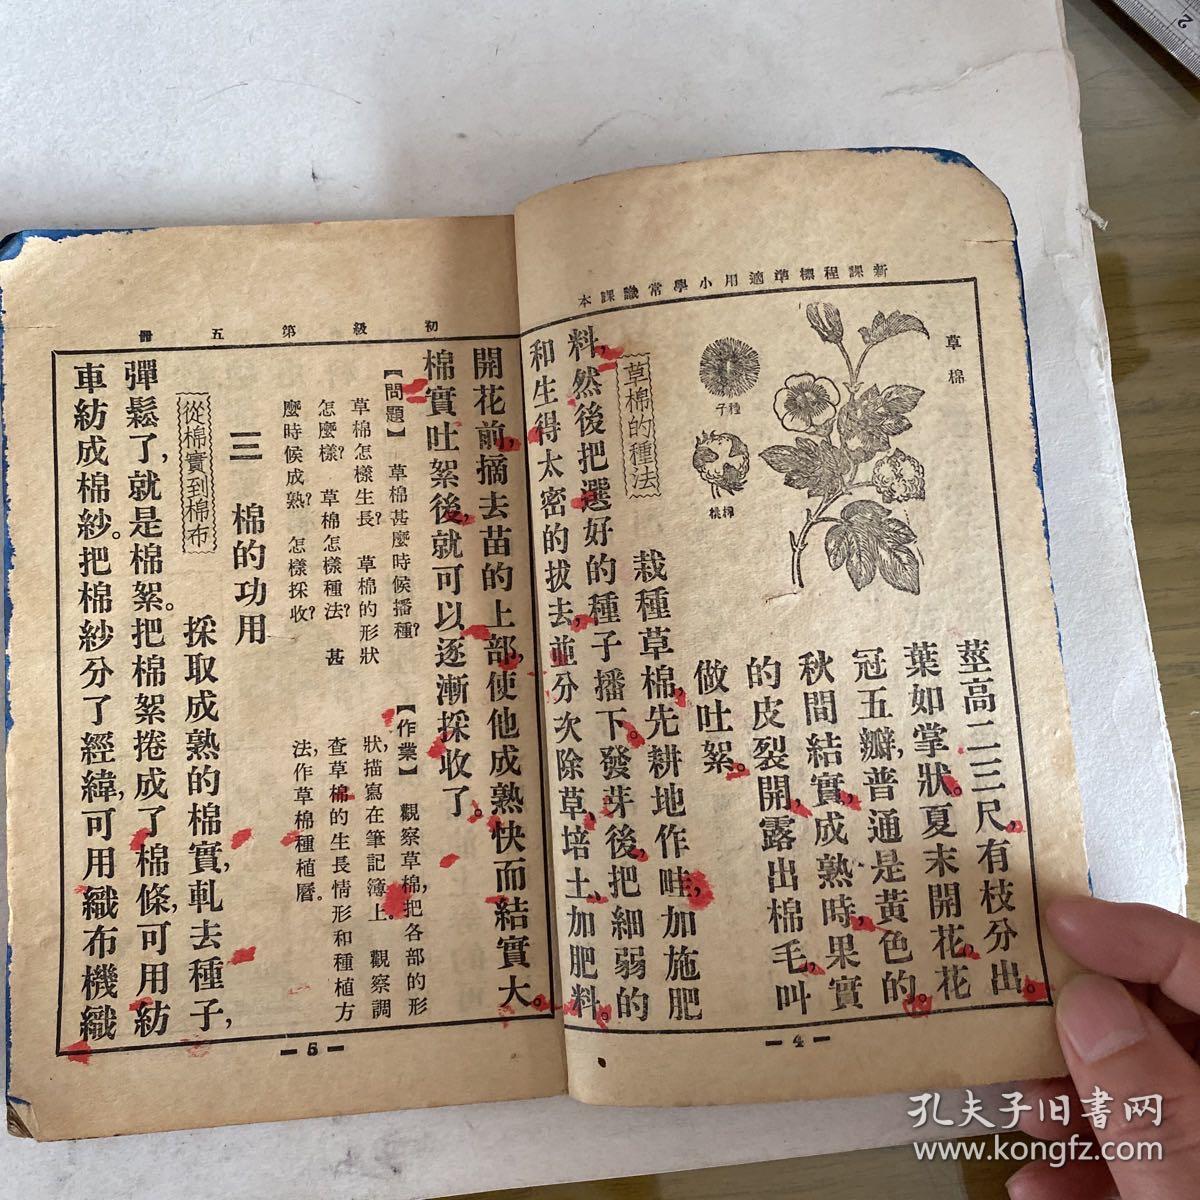 新課程標準適用小學常識課本
草棉
種子
棉桃
莖高二三尺，有枝分出。
葉如掌狀。夏末開花，花
冠五瓣，普通是黃色的。
秋間結實，成熟時，果實
的皮裂開，露出棉毛，叫
做吐絮。
草棉的種法
栽種草棉，先耕地作畦，加施肥
料，然後把選好的種子播下。發芽後，把細弱的
和生得太密的拔去，並分次除草、培土、加肥料。
—4—
初級第五冊
開花前，摘去苗的上部，使他成熟快而結實大。
棉實吐絮後，就可以逐漸採收了。
【問題】 草棉甚麼時候播種？
草棉怎樣生長？ 草棉的形狀
怎麼樣？ 草棉怎樣種法？ 甚
麼時候成熟？ 怎樣採收？
【作業】 觀察草棉，把各部的形
狀，描寫在筆記簿上。 觀察調
查草棉的生長情形和種植方
法，作草棉種植曆。
三 棉的功用
從棉實到棉布
採取成熟的棉實，軋去種子，
彈鬆了，就是棉絮。把棉絮捲成了棉條，可用紡
車紡成棉紗。把棉紗分了經緯，可用織布機織
—5—
孔夫子旧書网
www.kongfz.com
2